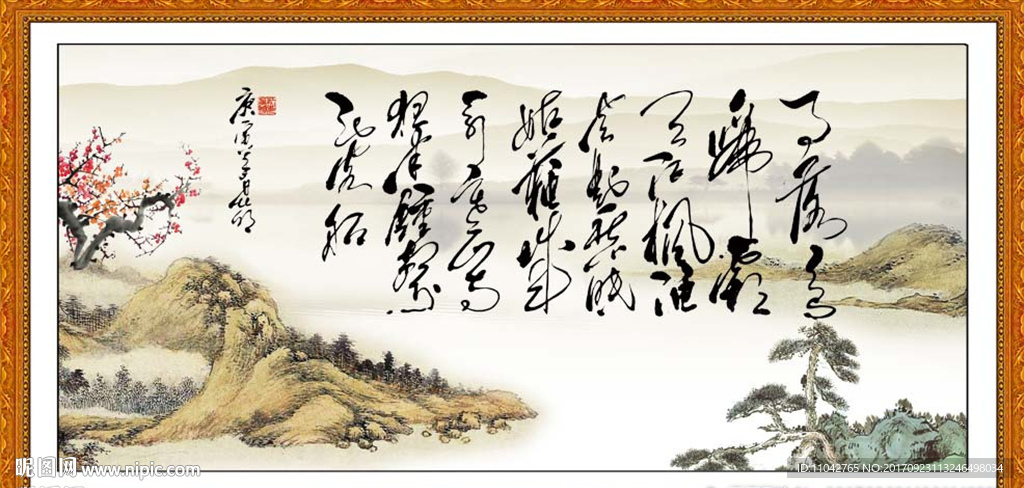 月落烏
啼霜滿
天江楓漁
火對愁眠
姑蘇城
外寒山寺
夜半鐘聲
到客船
庚寅
昵图网 www.nipic.com
ID:11042765 NO:20170923113246498034